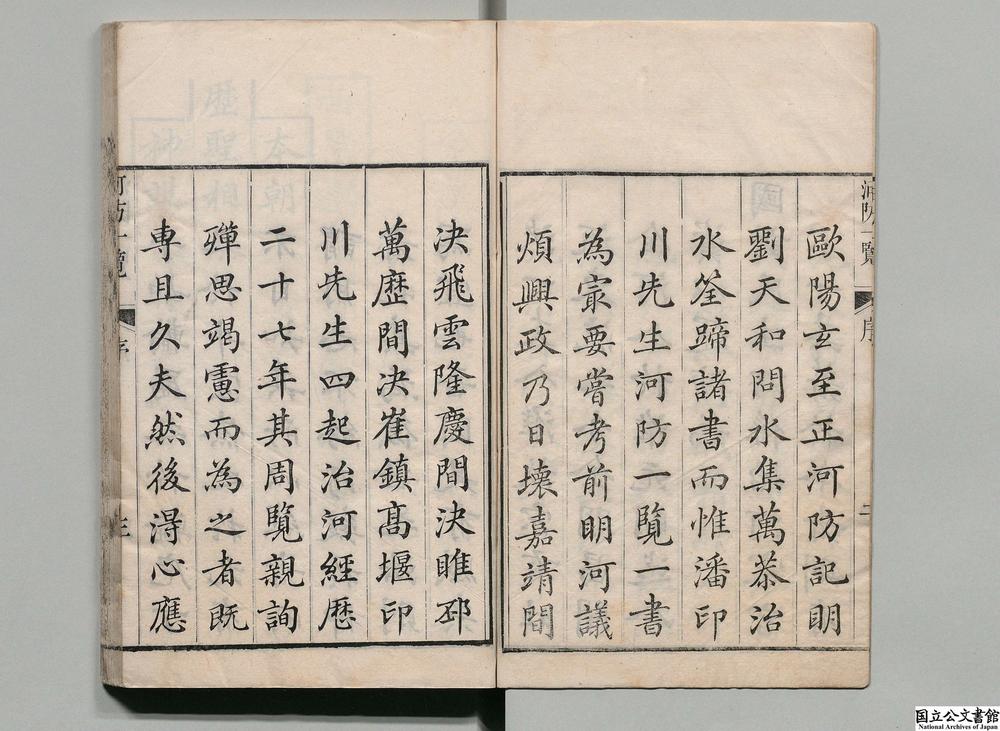 河防一覽
序
二
歐陽玄至正河防記明
劉天和問水集萬恭治
水筌蹄諸書而惟潘印
川先生河防一覽一書
為宻要嘗考前明河議
煩興政乃日壞嘉靖間
決飛雲隆慶間決睢邳
萬歷間决崔鎮高堰印
川先生四起治河經歷
二十七年其周覽親詢
殫思竭慮而為之者既
專且久夫然後淂心應
河防一覽
序
国立公文書館
National Archives of Japan